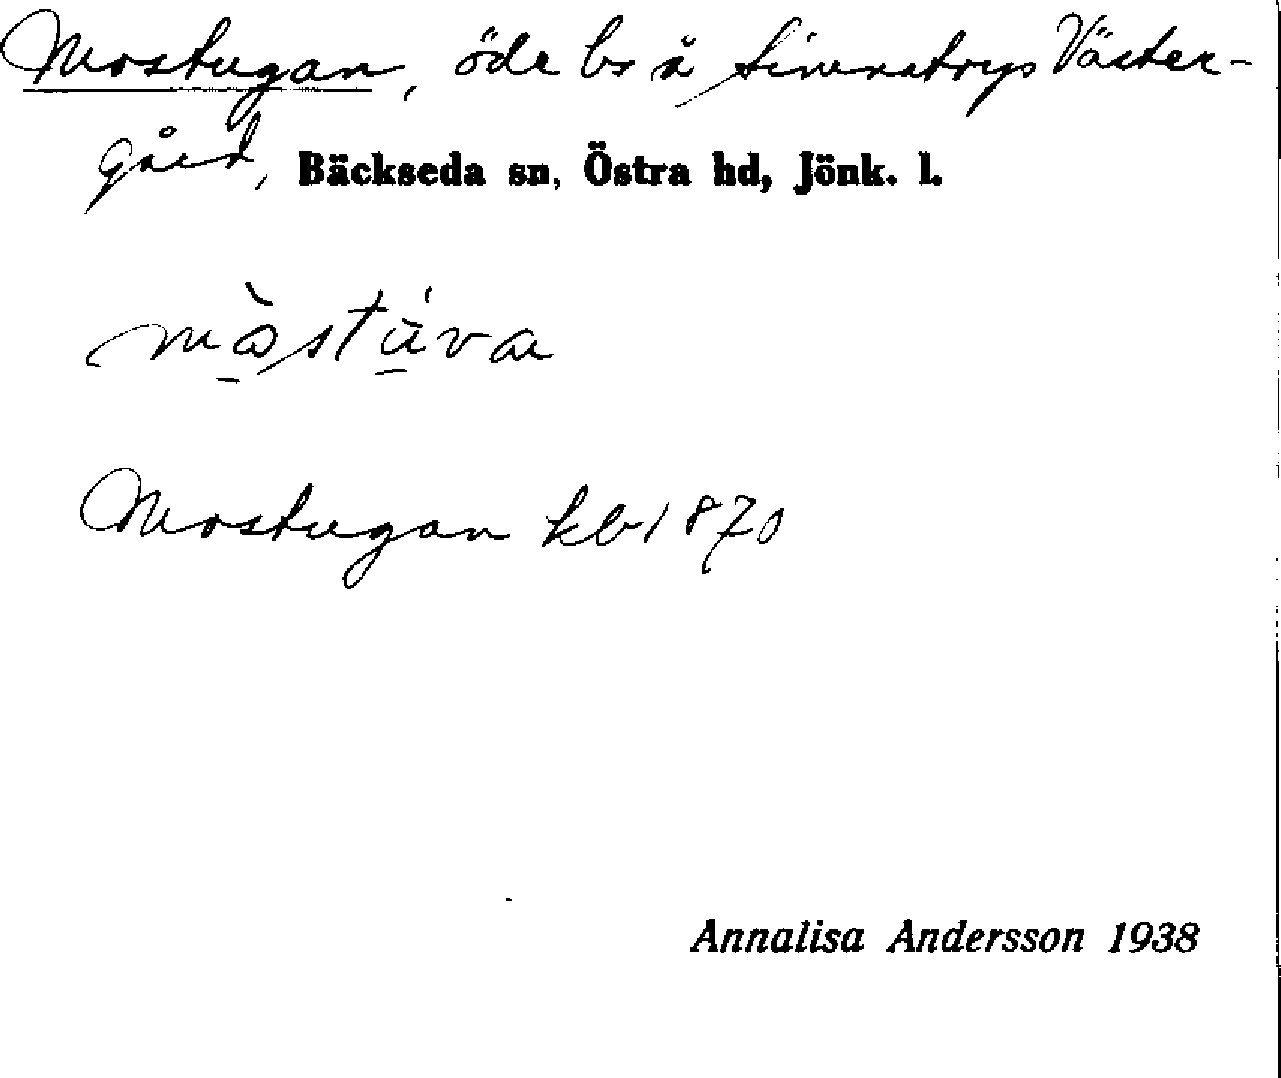 Mostugan, öde bs å Simnatorps Väster-
gård, Bäckseda sn, Östra hd, Jönk. l.
Mostugan kb 1870
Annalisa Andersson 1938